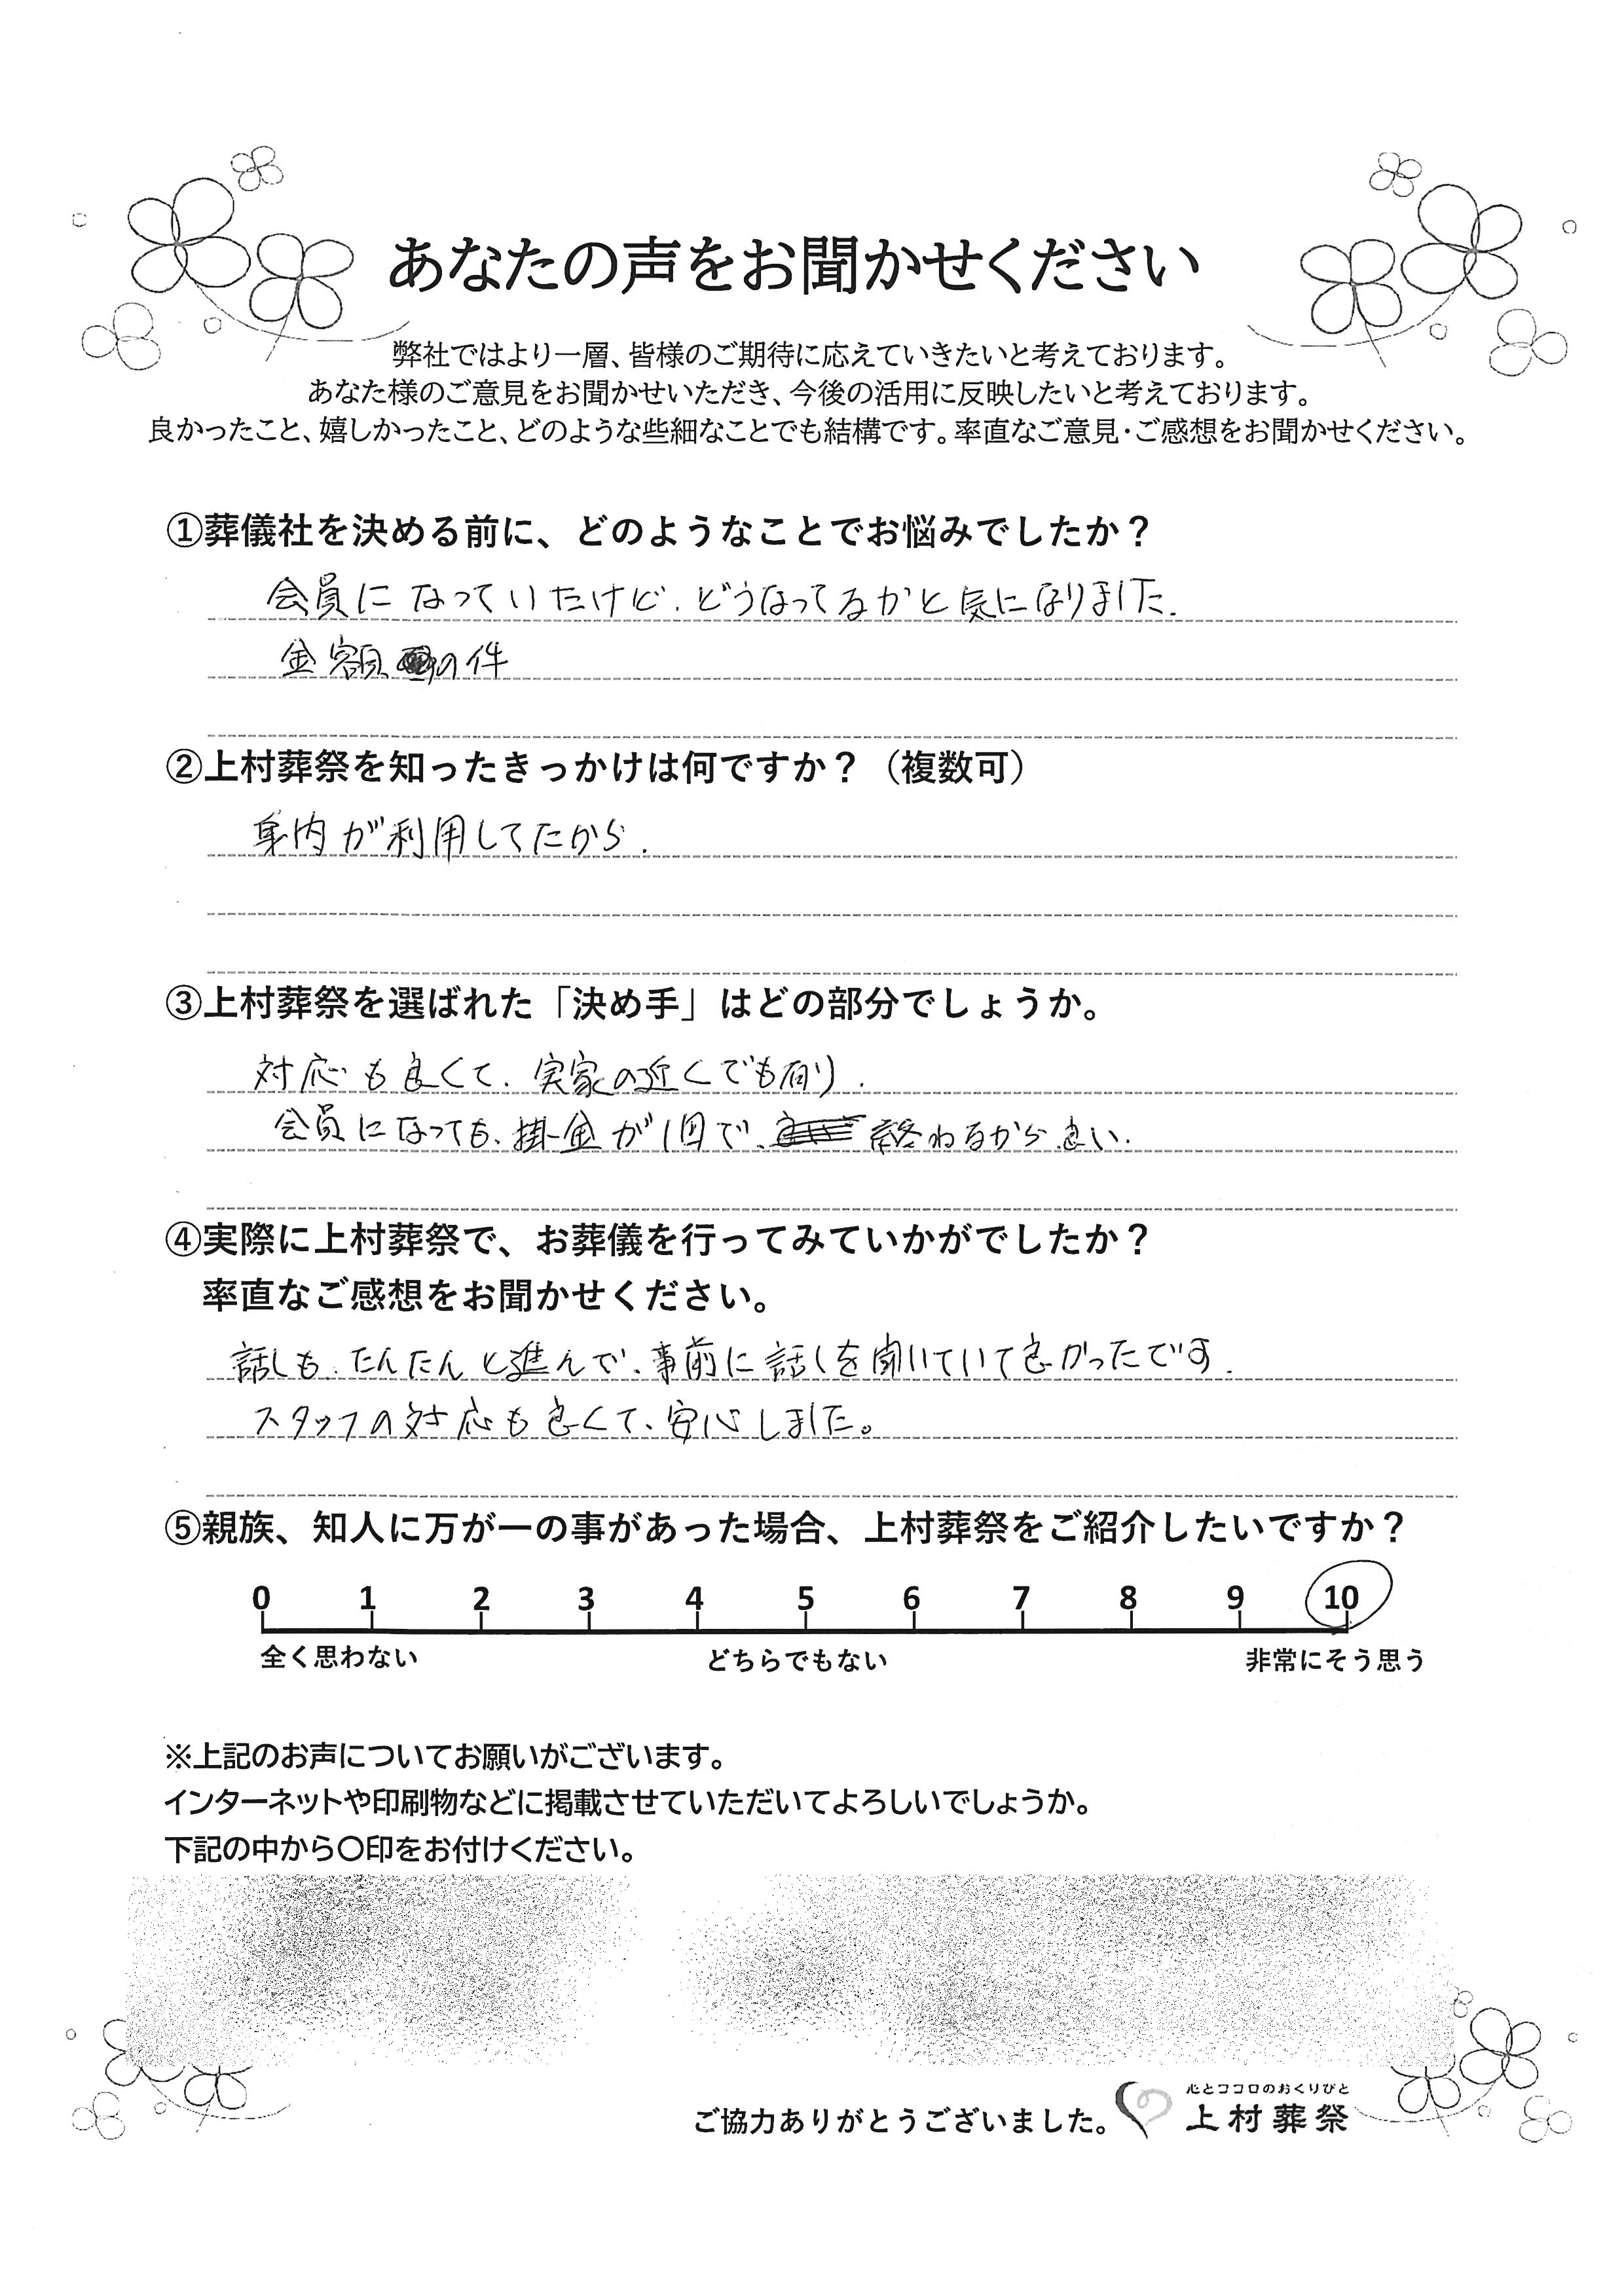 あなたの声をお聞かせください
弊社ではより一層、皆様のご期待に応えていきたいと考えております。
あなた様のご意見をお聞かせいただき、今後の活用に反映したいと考えております。
良かったこと、嬉しかったこと、どのような些細なことでも結構です。率直なご意見・ご感想をお聞かせください。
①葬儀社を決める前に、どのようなことでお悩みでしたか？
会員になっていたけど、どうなってるかと気になりました。
金額の件
②上村葬祭を知ったきっかけは何ですか？（複数可）
身内が利用してたから。
③上村葬祭を選ばれた「決め手」はどの部分でしょうか。
対応も良くて、実家の近くでも有り、
会員になっても、掛金が1回で、終わるから良い。
④実際に上村葬祭で、お葬儀を行ってみていかがでしたか？
率直なご感想をお聞かせください。
話しも、たんたんと進んで、事前に話しを聞いていて良かったです。
スタッフの対応も良くて、安心しました。
⑤親族、知人に万が一の事があった場合、上村葬祭をご紹介したいですか？
0 1 2 3 4 5 6 7 8 9 10
全く思わない どちらでもない 非常にそう思う
※上記のお声についてお願いがございます。
インターネットや印刷物などに掲載させていただいてよろしいでしょうか。
下記の中から〇印をお付けください。
心とココロのおくりびと
ご協力ありがとうございました。 上村葬祭